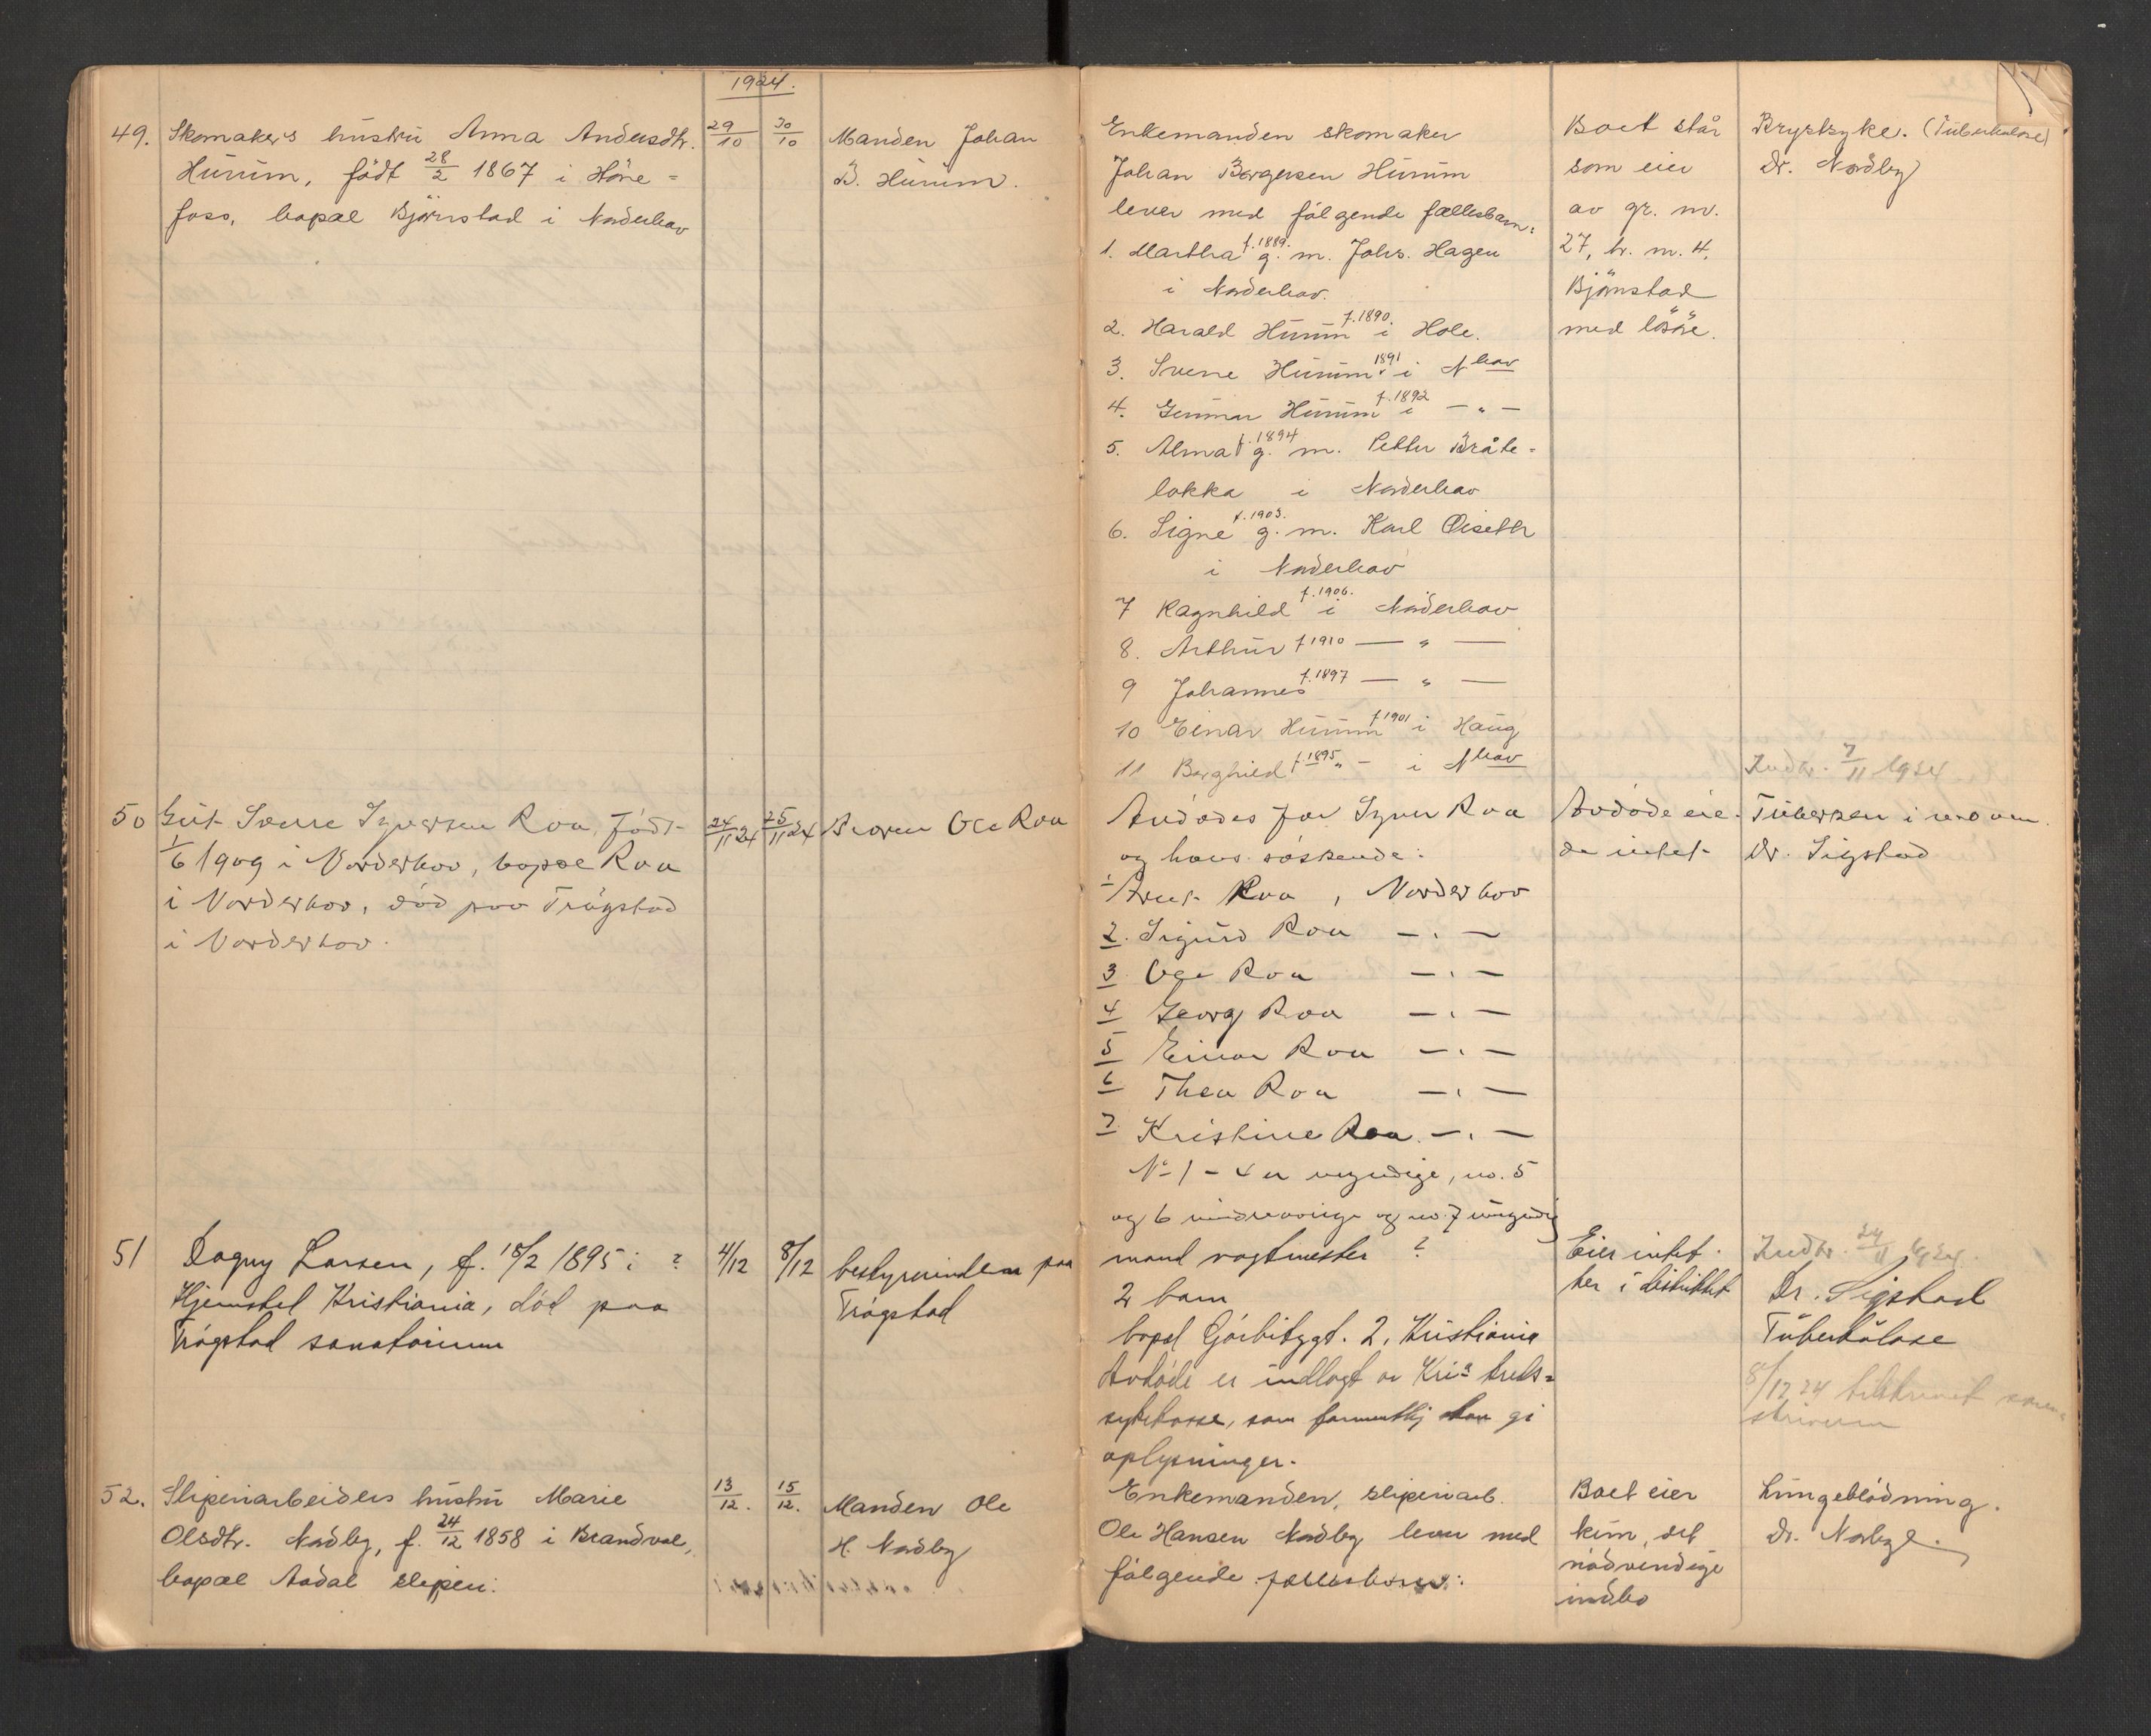 1924.
49. Skomakers hustru Anna Andersdtr.
Hurum, født 28/2 1867 i Høne=
foss, bopæl Bjørnstad i Norderhov
29/10
30/10
Manden Johan
B. Hurum.
Enkemanden skomaker
Johan Borgersen Hurum
lever med følgende fællesbarn:
1. Martha f. 1889. g. m. Johs. Hagen
i Norderhov.
2. Harald Hurum f. 1890 i Hole.
3. Sverre Hurum 1891 i Nhov
4. Gunnar Hurum f. 1892 i — " —
5. Alma f. 1894 g. m. Petter Bråte-
løkka i Norderhov
6. Signe f. 1903. g. m. Karl Øiseth
i Norderhov
7 Ragnhild f. 1906. i Norderhov
8. Arthur f 1910 — " —
9 Johannes f. 1897 — " —
10 Einar Hurum f 1901 i Haug
11 Borghild f. 1895 " — i Nhov
Boet står
som eier
av gr. nr.
27, br. nr. 4.
Bjørnstad
med løsøre.
Brystsyke. (Tuberkulose)
Dr. Nordby
50 Gut Sverre Iversen Roa, født
1/6 1909 i Norderhov, bopæl Roa
i Norderhov, død paa Trøgstad
i Norderhov.
24/11 24
25/11 24
Broren Ole Roa
Avdødes far Iver Roa
og hans søskende:
1 Arnt Roa, Norderhov
2. Sigurd Roa — " —
3 Ole Roa — " —
4 Georg Roa — " —
5 Einar Roa — " —
6 Thea Roa — " —
7 Kristine Roa — " —
No 1 - 4 er myndige, no. 5
og 6 mindreaarige og no. 7 umyndig
Avdøde eie-
de intet
Indb. 7/11 1924
Dr. Sigstad
51 Dagny Larsen, f. 18/2 1895 i ?
Hjemsted Kristiania, død paa
Trøgstad sanatorium
4/12
8/12
bestyrerinden paa
Trøgstad
mand vagtmester ?
2 barn
bopel Gjørbitzgt. 2, Kristiania
Avdøde er indlagt av Kr.a kreds=
sykekasse, som formentlig kan gi
oplysninger.
Eier intet
her i distriktet
Indb. 24/11 1924.
Dr. Sigstad
Tuberkulose
8/12 24 tilskrevet soren=
skriveren
52. Sliperiarbeiders hustru Marie
Olsdtr. Nordby, f. 24/12 1858 i Brandval,
bopæl Aadal sliperi.
13/12.
15/12.
Manden Ole
H. Nordby
Enkemanden, sliperiarb.
Ole Hansen Nordby lever med
følgende fællesbarn:
Boet eier
kun det
nødvendige
indbo
Lungeblødning.
Dr.